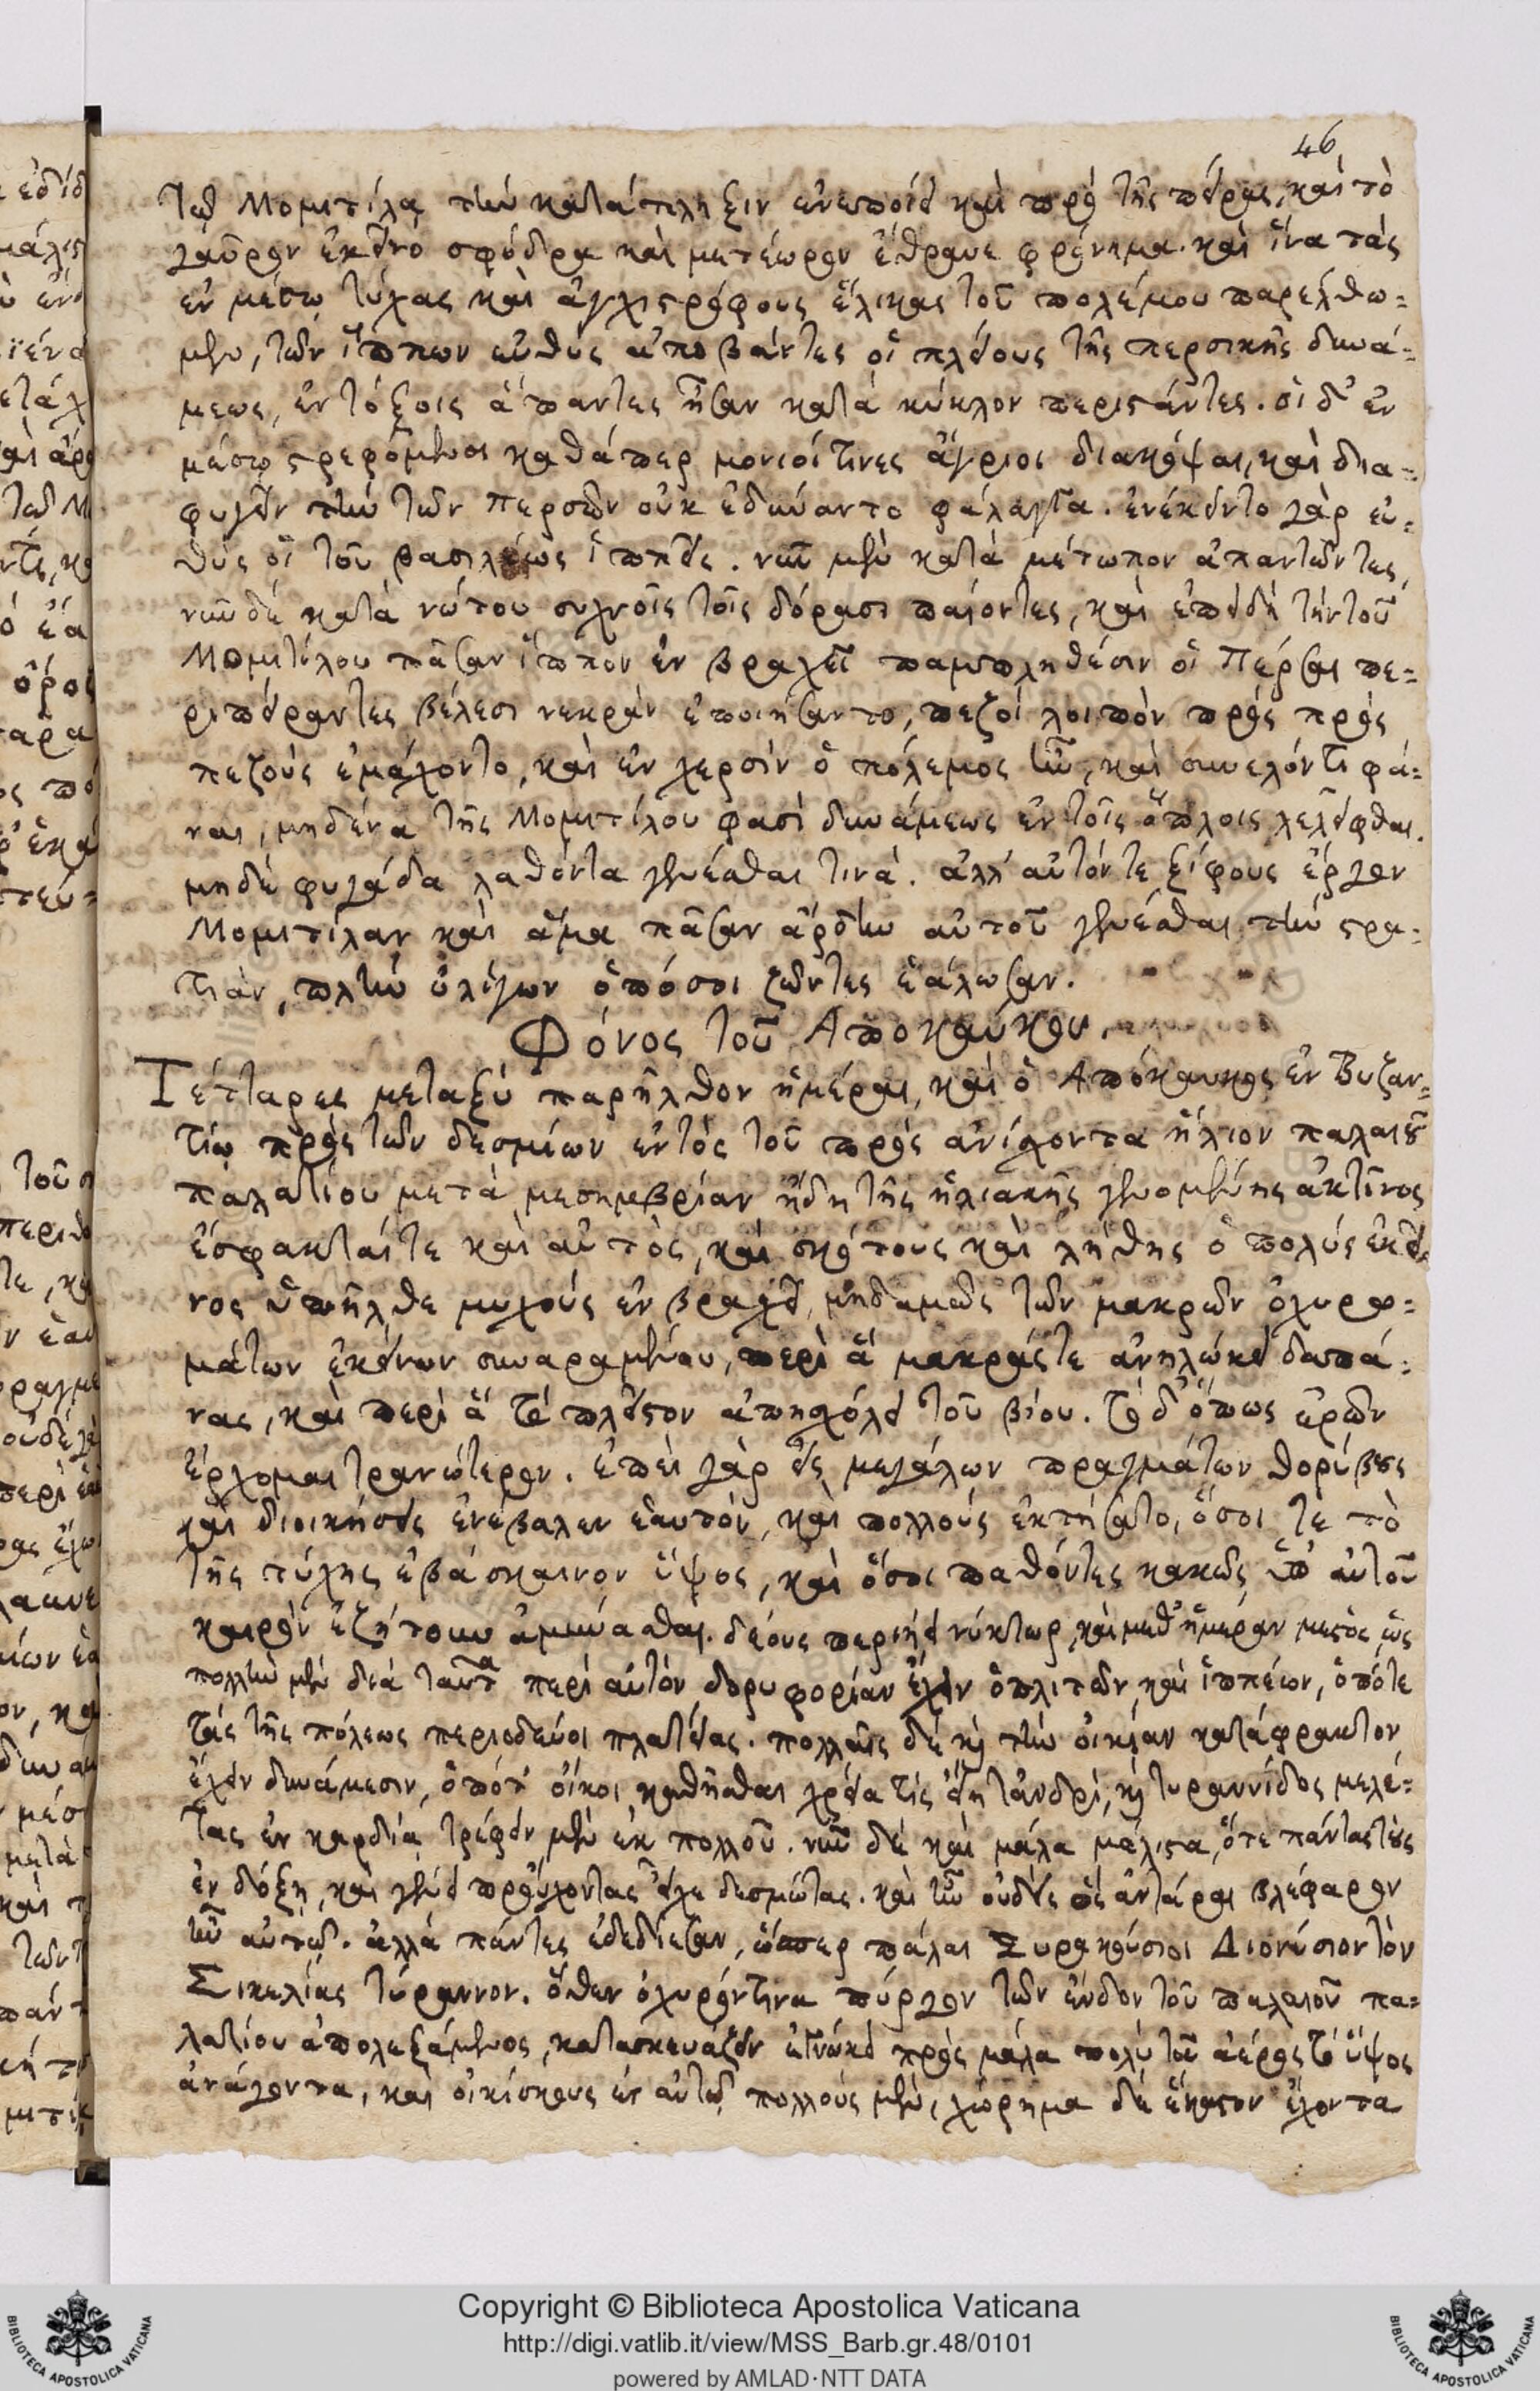 46
τῷ Μομιτίλᾳ τὴν κατάπληξιν ἐνεποίει καὶ πρὸ τῆς πείρας, καὶ τὸ
γαῦρον ἐκεῖνο σφόδρα καὶ μετέωρον ἔθραυε φρόνημα. καὶ ἵνα τὰς
ἐν μέσῳ τύχας καὶ ἀγχιστρόφους ἕλικας τοῦ πολέμου παρέλθω-
μεν, τῶν ἵππων εὐθὺς ἀποβάντες οἱ πλείους τῆς περσικῆς δυνά-
μεως, ἐν τόξοις ἅπαντες ἦσαν κατὰ κύκλον περιστάντες. οἱ δ' ἐν
μέσῳ στρεφόμενοι καθάπερ μονιοί τινες ἄγριοι διακόψαι, καὶ δια-
φυγεῖν τὴν τῶν Περσῶν οὐκ ἐδύναντο φάλαγγα. ἐνέκειντο γὰρ εὐ-
θὺς οἱ τοῦ βασιλέως ἱππεῖς. νῦν μὲν κατὰ μέτωπον ἀπαντῶντες,
νῦν δὲ κατὰ νώτου συχνοῖς τοῖς δόρασι παίοντες, καὶ ἐπειδὴ τὴν τοῦ
Μομιτίλου πᾶσαν ἵππον ἐν βραχεῖ παμπληθέσιν οἱ Πέρσαι πε-
ριπείραντες βέλεσι νεκρὰν ἐποιήσαντο, πεζοὶ λοιπὸν πρὸς πρὸς
πεζοὺς ἐμάχοντο, καὶ ἐν χερσὶν ὁ πόλεμος ἦν, καὶ συνελόντι φά-
ναι, μηδένα τῆς Μομιτίλου φασὶ δυνάμεως ἐν τοῖς ὅπλοις λελεῖφθαι.
μηδὲ φυγάδα λαθόντα γενέσθαι τινά. ἀλλ' αὐτόν τε ξίφους ἔργον
Μομιτίλαν καὶ ἅμα πᾶσαν ἄρδην αὐτοῦ γενέσθαι τὴν στρα-
τιὰν, πλὴν ὀλίγων ὁπόσοι ζῶντες ἑάλωσαν.
Φόνος τοῦ Ἀποκαύκου.
Τέτταρες μεταξὺ παρῆλθον ἡμέραι, καὶ ὁ Ἀπόκαυκος ἐν Βυζαν-
τίῳ πρὸς τῶν δεσμίων ἐντὸς τοῦ πρὸς ἀνίσχοντα ἥλιον παλαιοῦ
παλατίου μετὰ μεσημβρίαν ἤδη τῆς ἡλιακῆς γενομένης ἀκτῖνος
ἐσφακταί τε καὶ αὐτὸς, καὶ σκότους καὶ λήθης ὁ πολὺς ἐκεῖ-
νος ὑπῆλθε μυχοὺς ἐν βραχεῖ, μηδαμῶς τῶν μακρῶν ὀχυρω-
μάτων ἐκείνων συναραμένου, περὶ ἃ μακράς τε ἀνηλώκει δαπά-
νας, καὶ περὶ ἃ τὸ πλεῖστον ἀπησχόλει τοῦ βίου. τὸ δ' ὅπως ἐρῶν
ἔρχομαι τρανώτερον. ἐπεὶ γὰρ εἰς μεγάλων πραγμάτων θορύβους
καὶ διοικήσεις ἐνέβαλεν ἑαυτὸν, καὶ πολλοὺς ἐκτήσατο, ὅσοι τε τὸ
τῆς τύχης ἐβάσκαινον ὕψος, καὶ ὅσοι παθόντες κακῶς ὑπ' αὐτοῦ
καιρὸν ἐζήτουν ἀμύνασθαι. δέους περιῄει νύκτωρ, καὶ μεθ' ἡμέραν μεστὸς, ὡς
πολλὴν μὲν διὰ ταῦτα περὶ αὐτὸν δορυφορίαν ἔχειν ὁπλιτῶν, καὶ ἱππέων, ὁπότε
τὰς τῆς πόλεως περιοδεύοι πλατείας. πολλαῖς δὲ κ τὴν οἰκίαν κατάφρακτον
ἔχειν δυνάμεσιν, ὁπότ' οἴκοι καθῆσθαι χρεία τίς εἴη τἀνδρὶ, κ τυραννίδος μελέ-
τας ἐν καρδίᾳ τρέφειν μὲν ἐκ πολλοῦ. νῦν δὲ καὶ μάλα μάλιστα, ὅτε πάντας τοὺς
ἐν δόξῃ, καὶ γένει προὔχοντας εἶχε δεσμώτας. καὶ ἦν οὐδεὶς ὃς ἀντάραι βλέφαρον
ἦν αὐτῷ. ἀλλὰ πάντες ἐδεδίεσαν, ὥσπερ πάλαι Συρακούσιοι Διονύσιον τὸν
Σικελίας τύραννον. ὅθεν ὀχυρόν τινα πύργον τῶν ἔνδον τοῦ παλαιοῦ πα-
λατίου ἀπολεξάμενος, κατασκευάζειν ἐγνώκει πρὸς μάλα πολὺ τοῦ ἀέρος τὸ ὕψος
ἀνάγοντα, καὶ οἰκίσκους ἐν αὐτῷ πολλοὺς μὲν, χώρημα δὲ ἕκαστον ἔχοντα
Copyright © Biblioteca Apostolica Vaticana
http://digi.vatlib.it/view/MSS_Barb.gr.48/0101
powered by AMLAD·NTT DATA
BIBLIOTECA APOSTOLICA VATICANA
BIBLIOTECA APOSTOLICA VATICANA